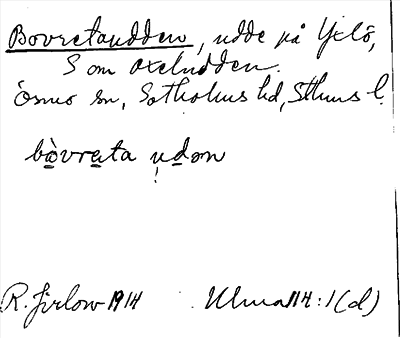 Bovretaudden, udde på Yxlö,
S om Oxeludden.
Ösmo sn, Sotholms hd, Sthms l.
bòvrata udən
R. Jirlow 1914 Ulma 114:1(d)